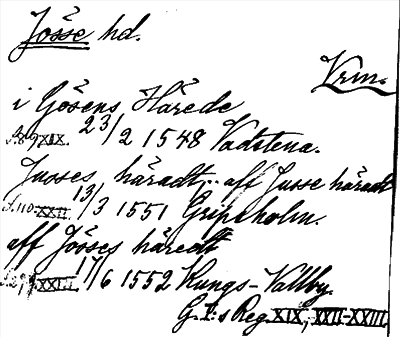 Jösse hd.
Vrm.
i Gösens Härede
s. 89 XIX. 23/2 1548 Vadstena.
Jusses häradt, aff Jusse häradt
s. 110 XXII. 13/3 1551 Gripsholm.
aff Jösses häredt
XXIII. 17/6 1552 Kungs-Vallby.
G. I:s Reg. XIX, XXII-XXIII.